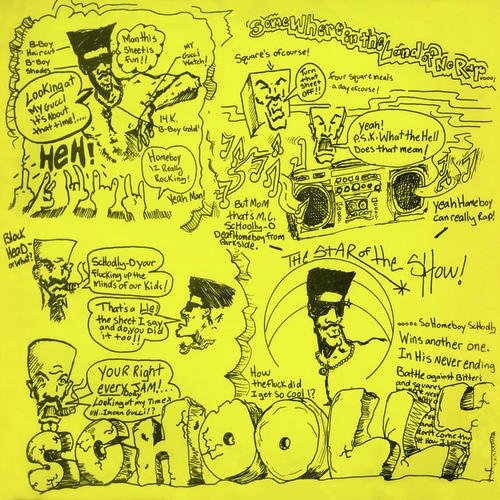 Somewhere in the Land of No Rap.....
B-Boy
Haircut
B-Boy
Shades
Man this
Sheet is
Fun!!
MY
Gucci
Watch!
Looking at
My Gucci
it's About
that time!....
14 K.
B-Boy Gold!
HeH!
Homeboy
is Really
Rocking!
Yeah Man!
Square's of course!
Turn
that
sheet
OFF!!
four square meals
a day of course!
Yeah!
P.S.K. What the Hell
Does that mean!
But Mom
that's M.C.
Schoolly-D
Deaf Homeboy from
Parkside.
yeah Homeboy
can really Rap!
Block
Head-
or what?
Schoolly-D your
flucking up the
Minds of our Kids!
That's a Lie!
the sheet I say
and do, you Did
it too!!
THE STAR of the SHow!
..... So Homeboy Schoolly
Wins another one.
In His Never ending
Battle against Biters
and squares
How
the fluck did
I get so cool!?
YOUR Right
every JAM!...
Looking at my Time
UH..I mean Gucci!?
don't come the
SCHOOLLY